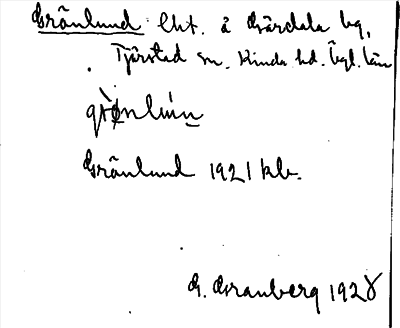 Grönlund lht. å Gärdala bg,
Tjärstad sn. Kinda hd. Ögl. län
Grönlund 1921 kb.
G. Granberg 1928